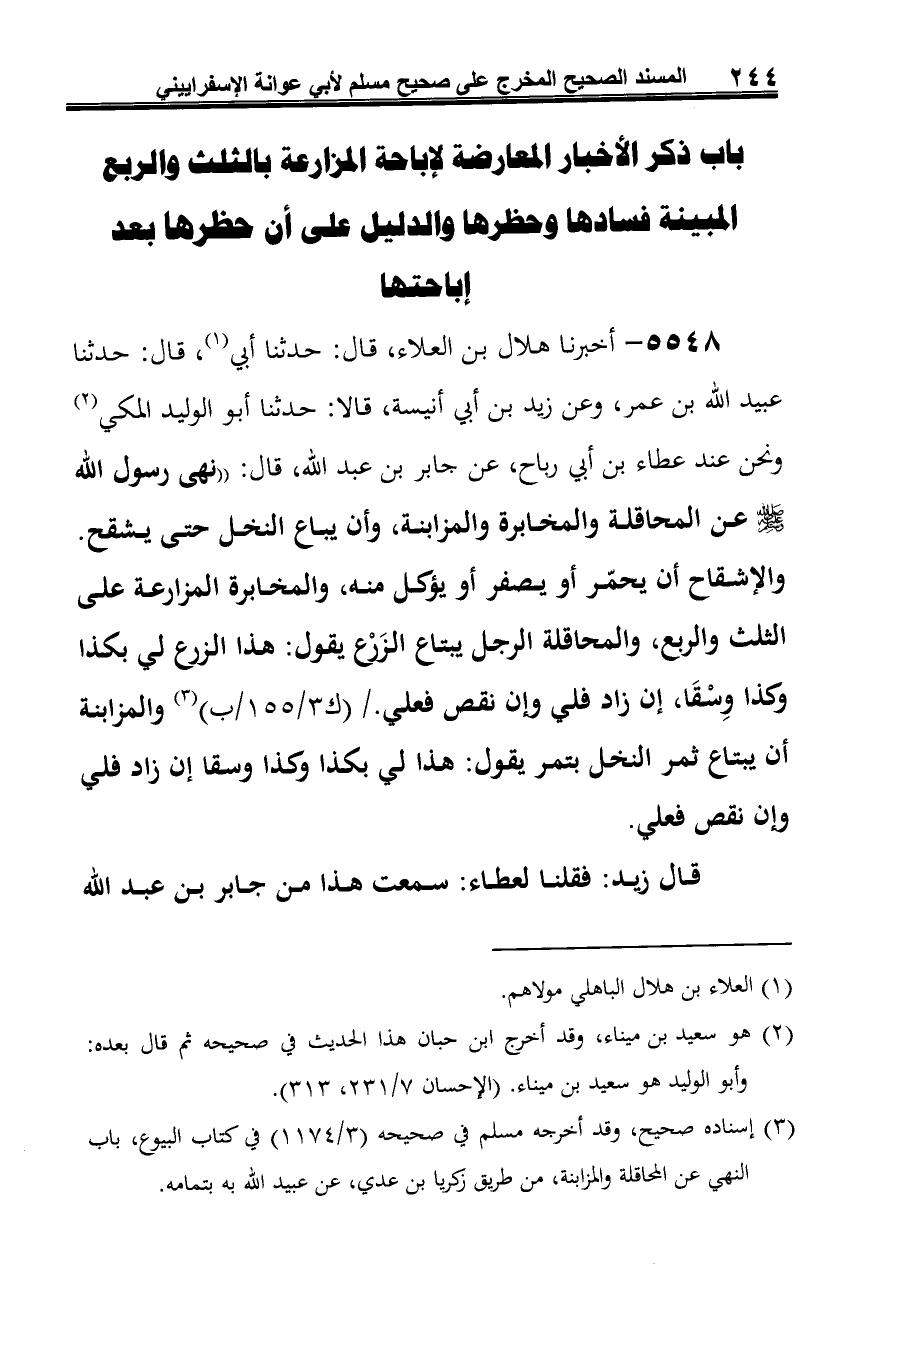 ٢٤٤ المسند الصحيح المخرج على صحيح مسلم لأبي عوانة الإسفراييني
باب ذكر الأخبار المعارضة لإباحة المزارعة بالثلث والربع
المبينة فسادها وحظرها والدليل على أن حظرها بعد
إباحتها
٥٥٤٨- أخبرنا هلال بن العلاء، قال: حدثنا أبي(١)، قال: حدثنا
عبيد الله بن عمر، وعن زيد بن أبي أنيسة، قالا: حدثنا أبو الوليد المكي(٢)
ونحن عند عطاء بن أبي رباح، عن جابر بن عبد الله، قال: ((نهى رسول الله
ﷺ عن المحاقلة والمخابرة والمزابنة، وأن يباع النخل حتى يشقح.
والإشقاح أن يحمّر أو يصفر أو يؤكل منه، والمخابرة المزارعة على
الثلث والربع، والمحاقلة الرجل يبتاع الزَرْع يقول: هذا الزرع لي بكذا
وكذا وِسْقَا، إن زاد فلي وإن نقص فعلي./ (ك١٥٥/٣/ب)(٣) والمزابنة
أن يبتاع ثمر النخل بتمر يقول: هذا لي بكذا وكذا وسقا إن زاد فلي
وإن نقص فعلي.
قال زيد: فقلنا لعطاء: سمعت هذا من جابر بن عبد الله
(١) العلاء بن هلال الباهلي مولاهم.
(٢) هو سعيد بن ميناء، وقد أخرج ابن حبان هذا الحديث في صحيحه ثم قال بعده:
وأبو الوليد هو سعيد بن ميناء. (الإحسان ٢٣١/٧، ٣١٣).
(٣) إسناده صحيح، وقد أخرجه مسلم في صحيحه (١١٧٤/٣) في كتاب البيوع، باب
النهي عن المحاقلة والمزابنة، من طريق زكريا بن عدي، عن عبيد الله به بتمامه.